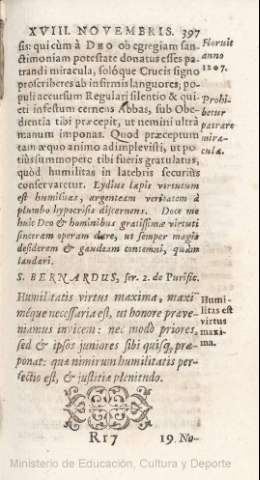 XVIII. NOVEMBRIS. 397
sis: qui cùm à DEO ob egregiam san-
ctimoniam potestate donatus esses pa-
trandi miracula, solóque Crucis signo
proscriberes ab infirmis languores; po-
puli accursum Regulari silentio & qui-
eti infestum cernens Abbas, sub Obe-
dientia tibi præcepit, ut nemini ultrà
manum imponas. Quod præceptum
tam æquo animo adimplevisti, ut po-
tiùs summopere tibi fueris gratulatus,
quòd humilitas in latebris securiùs
conservaretur. Lydius lapis virtutum
est humilitas, argenteam veritatem à
plumbo hypocrisis discernens. Doce me
huic Deo & hominibus gratissimæ virtuti
sinceram operam dare, ut semper magis
desiderem & gaudeam contemni, quàm
laudari.
Floruit
anno
1207.
Prohi-
betur
patrare
mira-
cula.
S. BERNARDUS, ser. 2. de Purific.
Humilitatis virtus maxima, maxi-
méque necessaria est, ut honore præve-
niamus invicem: nec modò priores,
sed & ipsos juniores sibi quisq; præ-
ponat: quæ nimirum humilitatis per-
fectio est, & justitiæ plenitudo.
Humi-
litas est
virtus
maxi-
ma.
R r 7 19 No-
Ministerio de Educación, Cultura y Deporte